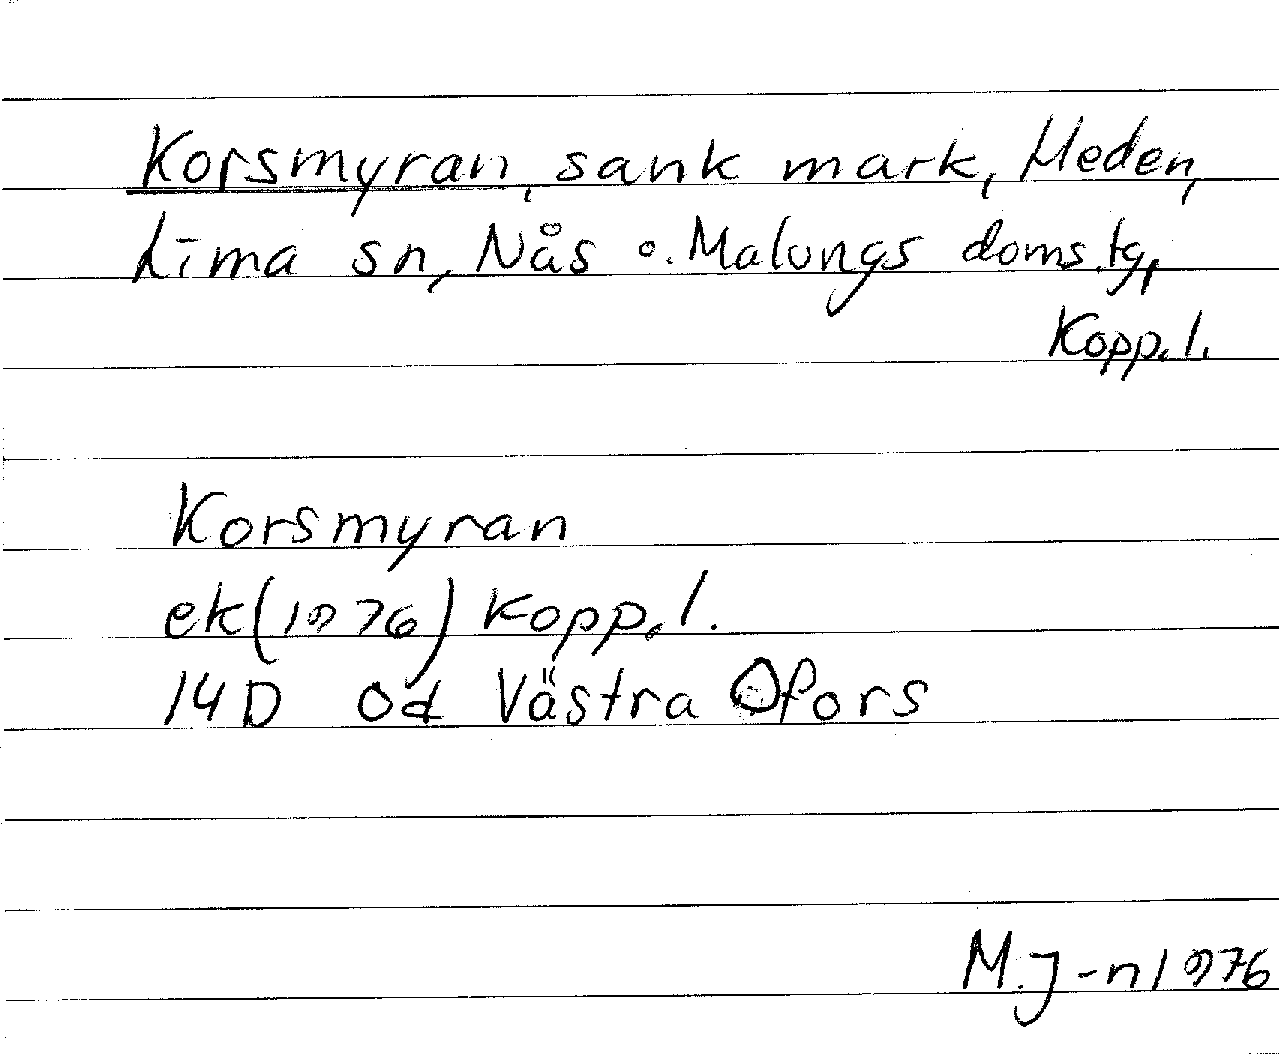 Korsmyran, sank mark, Heden,
Lima sn, Nås o. Malungs doms.tg,
Kopp.l.
Korsmyran
ek(1976) Kopp.l.
14D 0d Västra Ofors
M.J-n 1976